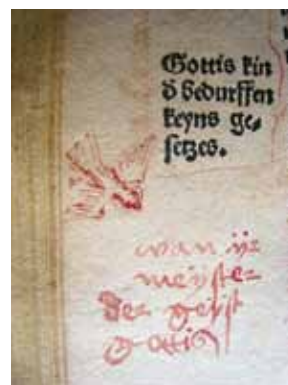 Gottis kin
ď bedurffen
keyns ge⸗
setzes.
wan ir
meyster
der geyst
Gottis